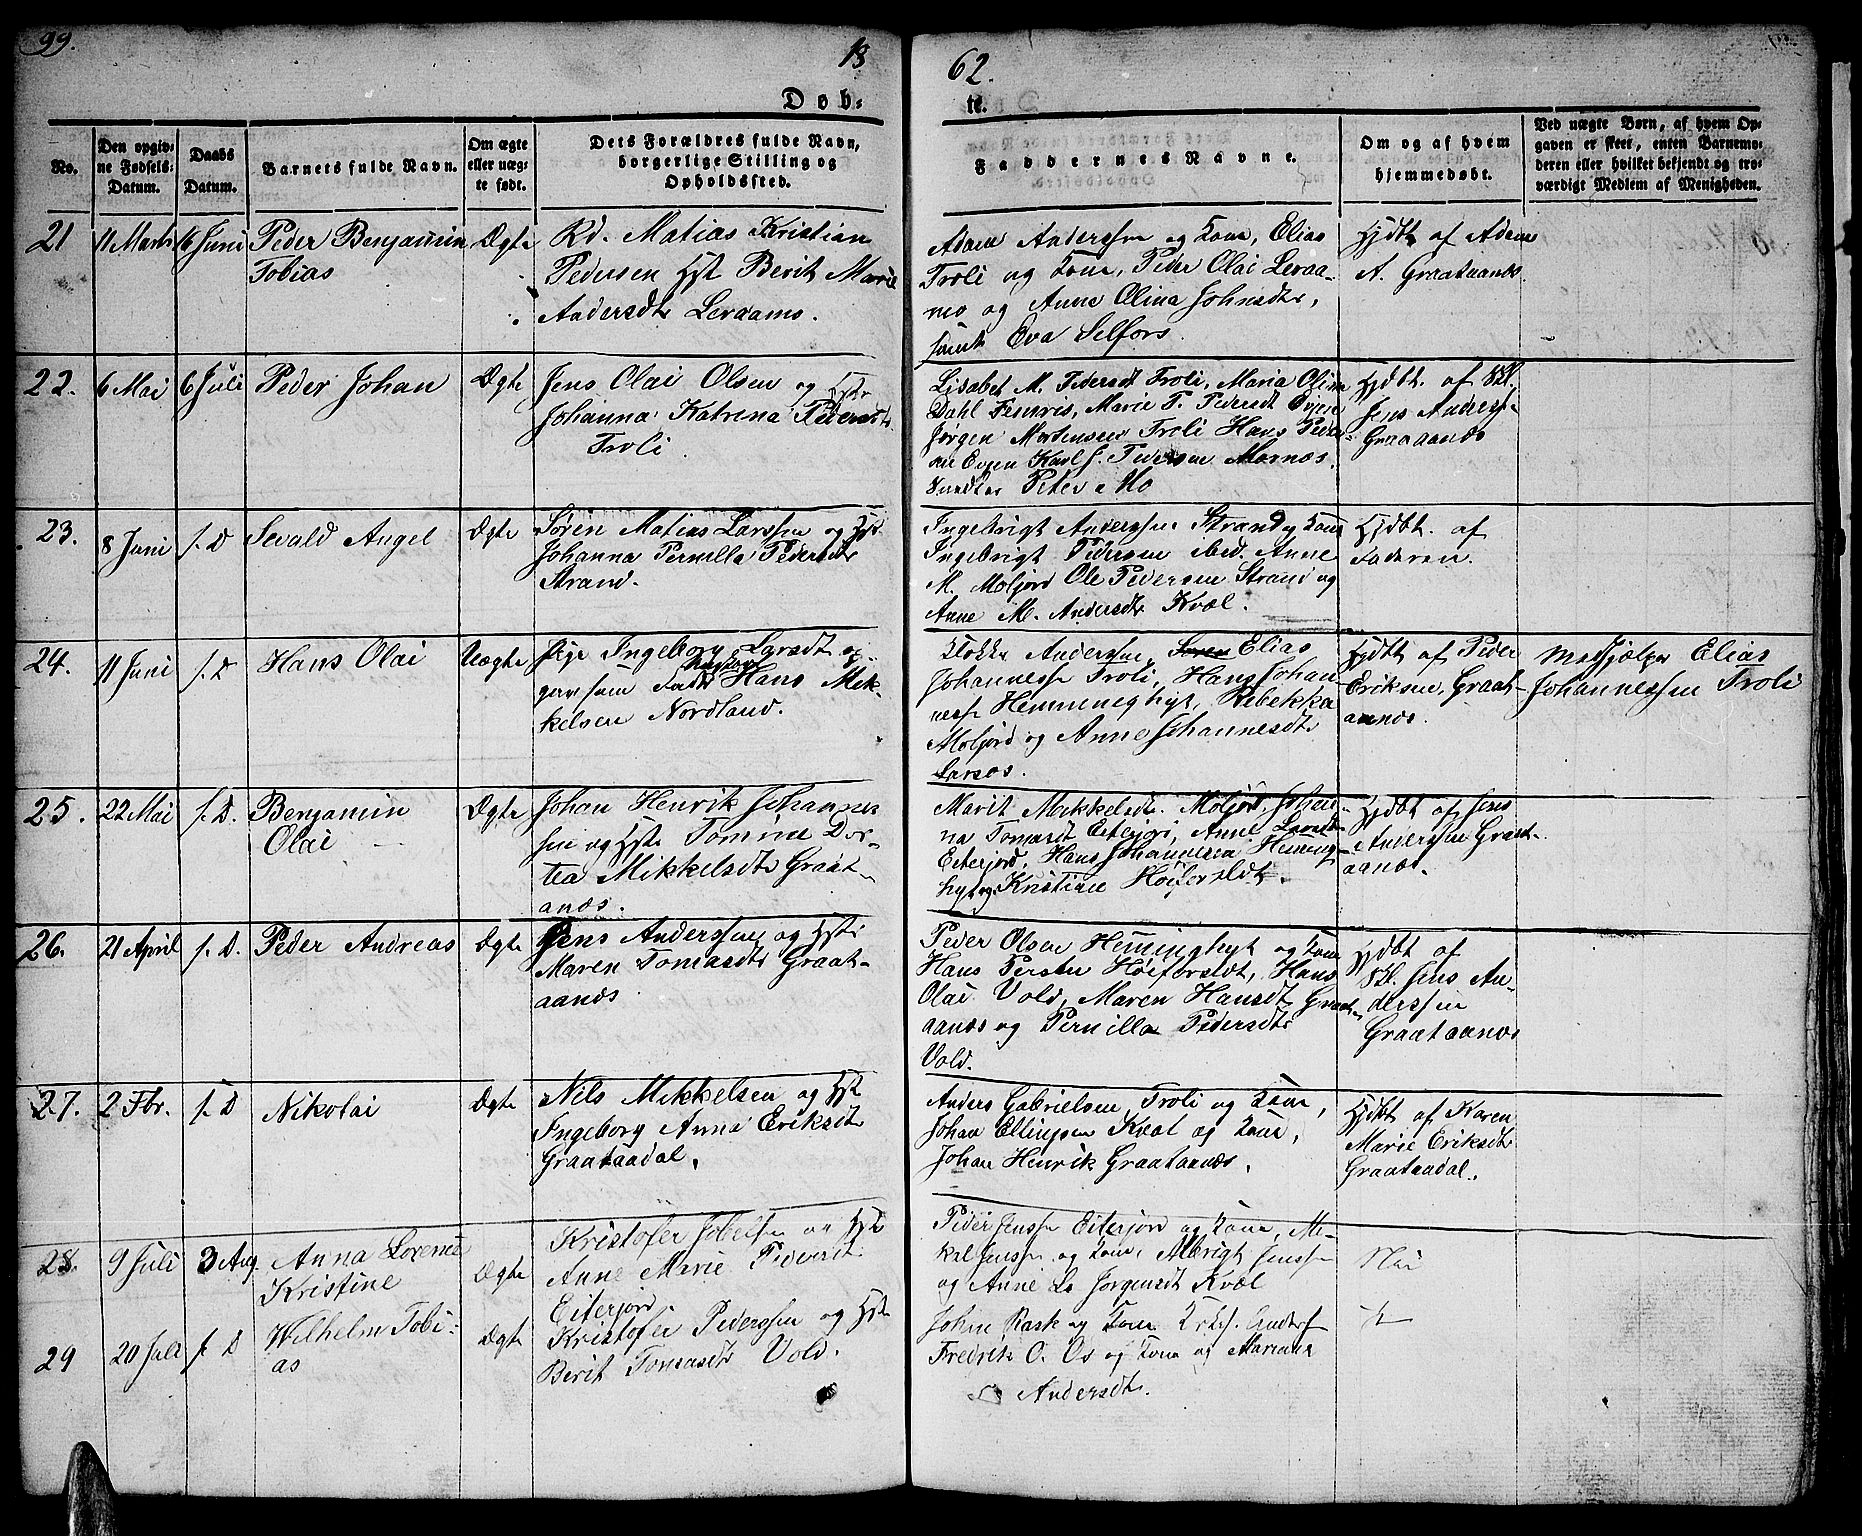 99.
18
62.
Døb-
te.
No.
Den opgiv-
ne Fødsels-
Datum.
Daabs
Datum.
Barnets fulde Navn.
Om ægte
eller uæg-
te født.
Dets Forældres fulde Navn,
borgerlige Stilling og
Opholdssted.
Faddernes Navne.
Om og af hvem
hjemmedøbt.
Ved uægte Børn, af hvem Op-
gaven er skeet, enten Barnemo-
deren eller hvilket bekjendt og tro-
værdigt Medlem af Menigheden.
21
11 Marts
16 Juni
Peder Benjamin
Tobias
Ægte
Rd. Matias Kristian
Pedersen Hst Berit Marie
Andersdtr Leraamo.
Adam Anderssen og Kone, Elias
Troli og Kone, Peder Olai Leraa-
mo og Anne Olina Johnsdtr,
samt Eva Selfors.
Hjdbt af Adam
A. Graataanæs
22.
6 Mai
6 Juli
Peder Johan
Ægte
Jens Olai Olsen og Hstr
Johanna Katrena Pedersdtr
Troli
Lisabet M. Pedersdt Troli, Maria Olina
Dahl Fenvris, Marie P. Pedersdt Evjen
Jørgen Mortensen Troli Hans Peder-
sen Evjen Karl J. Pedersen Marnæs.
Peter Mo
Hjdbt. af Skl.
Jens Anders-
Graataanæs
23.
8 Juni
s. D
Sevald Angel
Ægte
Søren Matias Larssen og Hst
Johanna Pernilla Pedersdtr
Strand.
Ingebrigt Anderssen Strand og Kone
Ingebrigt Pedersen ibed. Anne
M. Moljord Ole Pedersen Strand og
Anne M. Andersdtr Kvæl.
Hjdbt. af
Faderen.
24.
11 Juni
s. D
Hans Olai
Uægte
Pige Ingeborg Larsdt op-
giver som Fader Ungkarl Hans Mik-
kelsen Nordland.
Klokker Anderssen, Elias
Johannessen Troli, Hans Johan-
nessen Hemmingshyt, Rebekka
Moljord og Anne Johannesdtr
Larsos.
Hjdbt af Peder
Eriksen, Graat-
aanæs.
Medhjælper Elias
Johannessen Troli
25.
22 Mai
s. D.
Benjamin
Olai
Ægte
Johan Henrik Johannes
sen og Hst Tomine Dor-
tea Mikkelsdtr Graat-
anæs.
Marit Mikkelsdt. Moljord, Johan-
na Tomasdt Eiterjord, Anne Larsdtr
Eiterjord, Hans Johannesen Heming-
hyt og Kristine Høiforsldt.
Hjdbt af Jens
Anderssen Graat-
aanæs.
26.
21 April
s. D.
Peder Andreas
Ægte
Jens Anderssen og Hstr
Maren Tomasdtr Graat-
aanæs
Peder Olsen Hemminghyt og Kone
Hans Persen Høiforsldt, Hans
Olai Vold, Maren Hansdt Graat-
aanæs og Pernilla Pedersdtr
Vold.
Hjdbt af
Skl. Jens An-
derssen
Graataanæs
27.
2 Fbr.
s. D
Nikolai
Ægte
Nils Mikkelsen og Hst
Ingeborg Anna Eriksdtr
Graataadal.
Anders Gabrielsen Troli og Kone,
Johan Ellingsen Kvæl og Kone,
Johan Henrik Graataanæs.
Hjdbt af Karen
Marie Eriksdtr
Graataadal.
28.
9 Juli
3 Aug.
Anna Lorense
Kristine
Ægte
Kristofer Jobelsen og Hst
Anne Marie Pedersdt
Eiterjord.
Peder Jenssen Eiterjord og Kone, Mi-
kal Jenssen og Kone, Albrigt Jenssen
og Anne Ls Jørgensdt Kvæl
Nei
29
20 Juli
s. D
Wilhelm Tobi-
as
Ægte
Kristofer Pederssen og Hst
Berit Tomasdtr Vold.
John Rask og Kone
Fredrik O. Os og Kone og Mariana
Andersdtr.